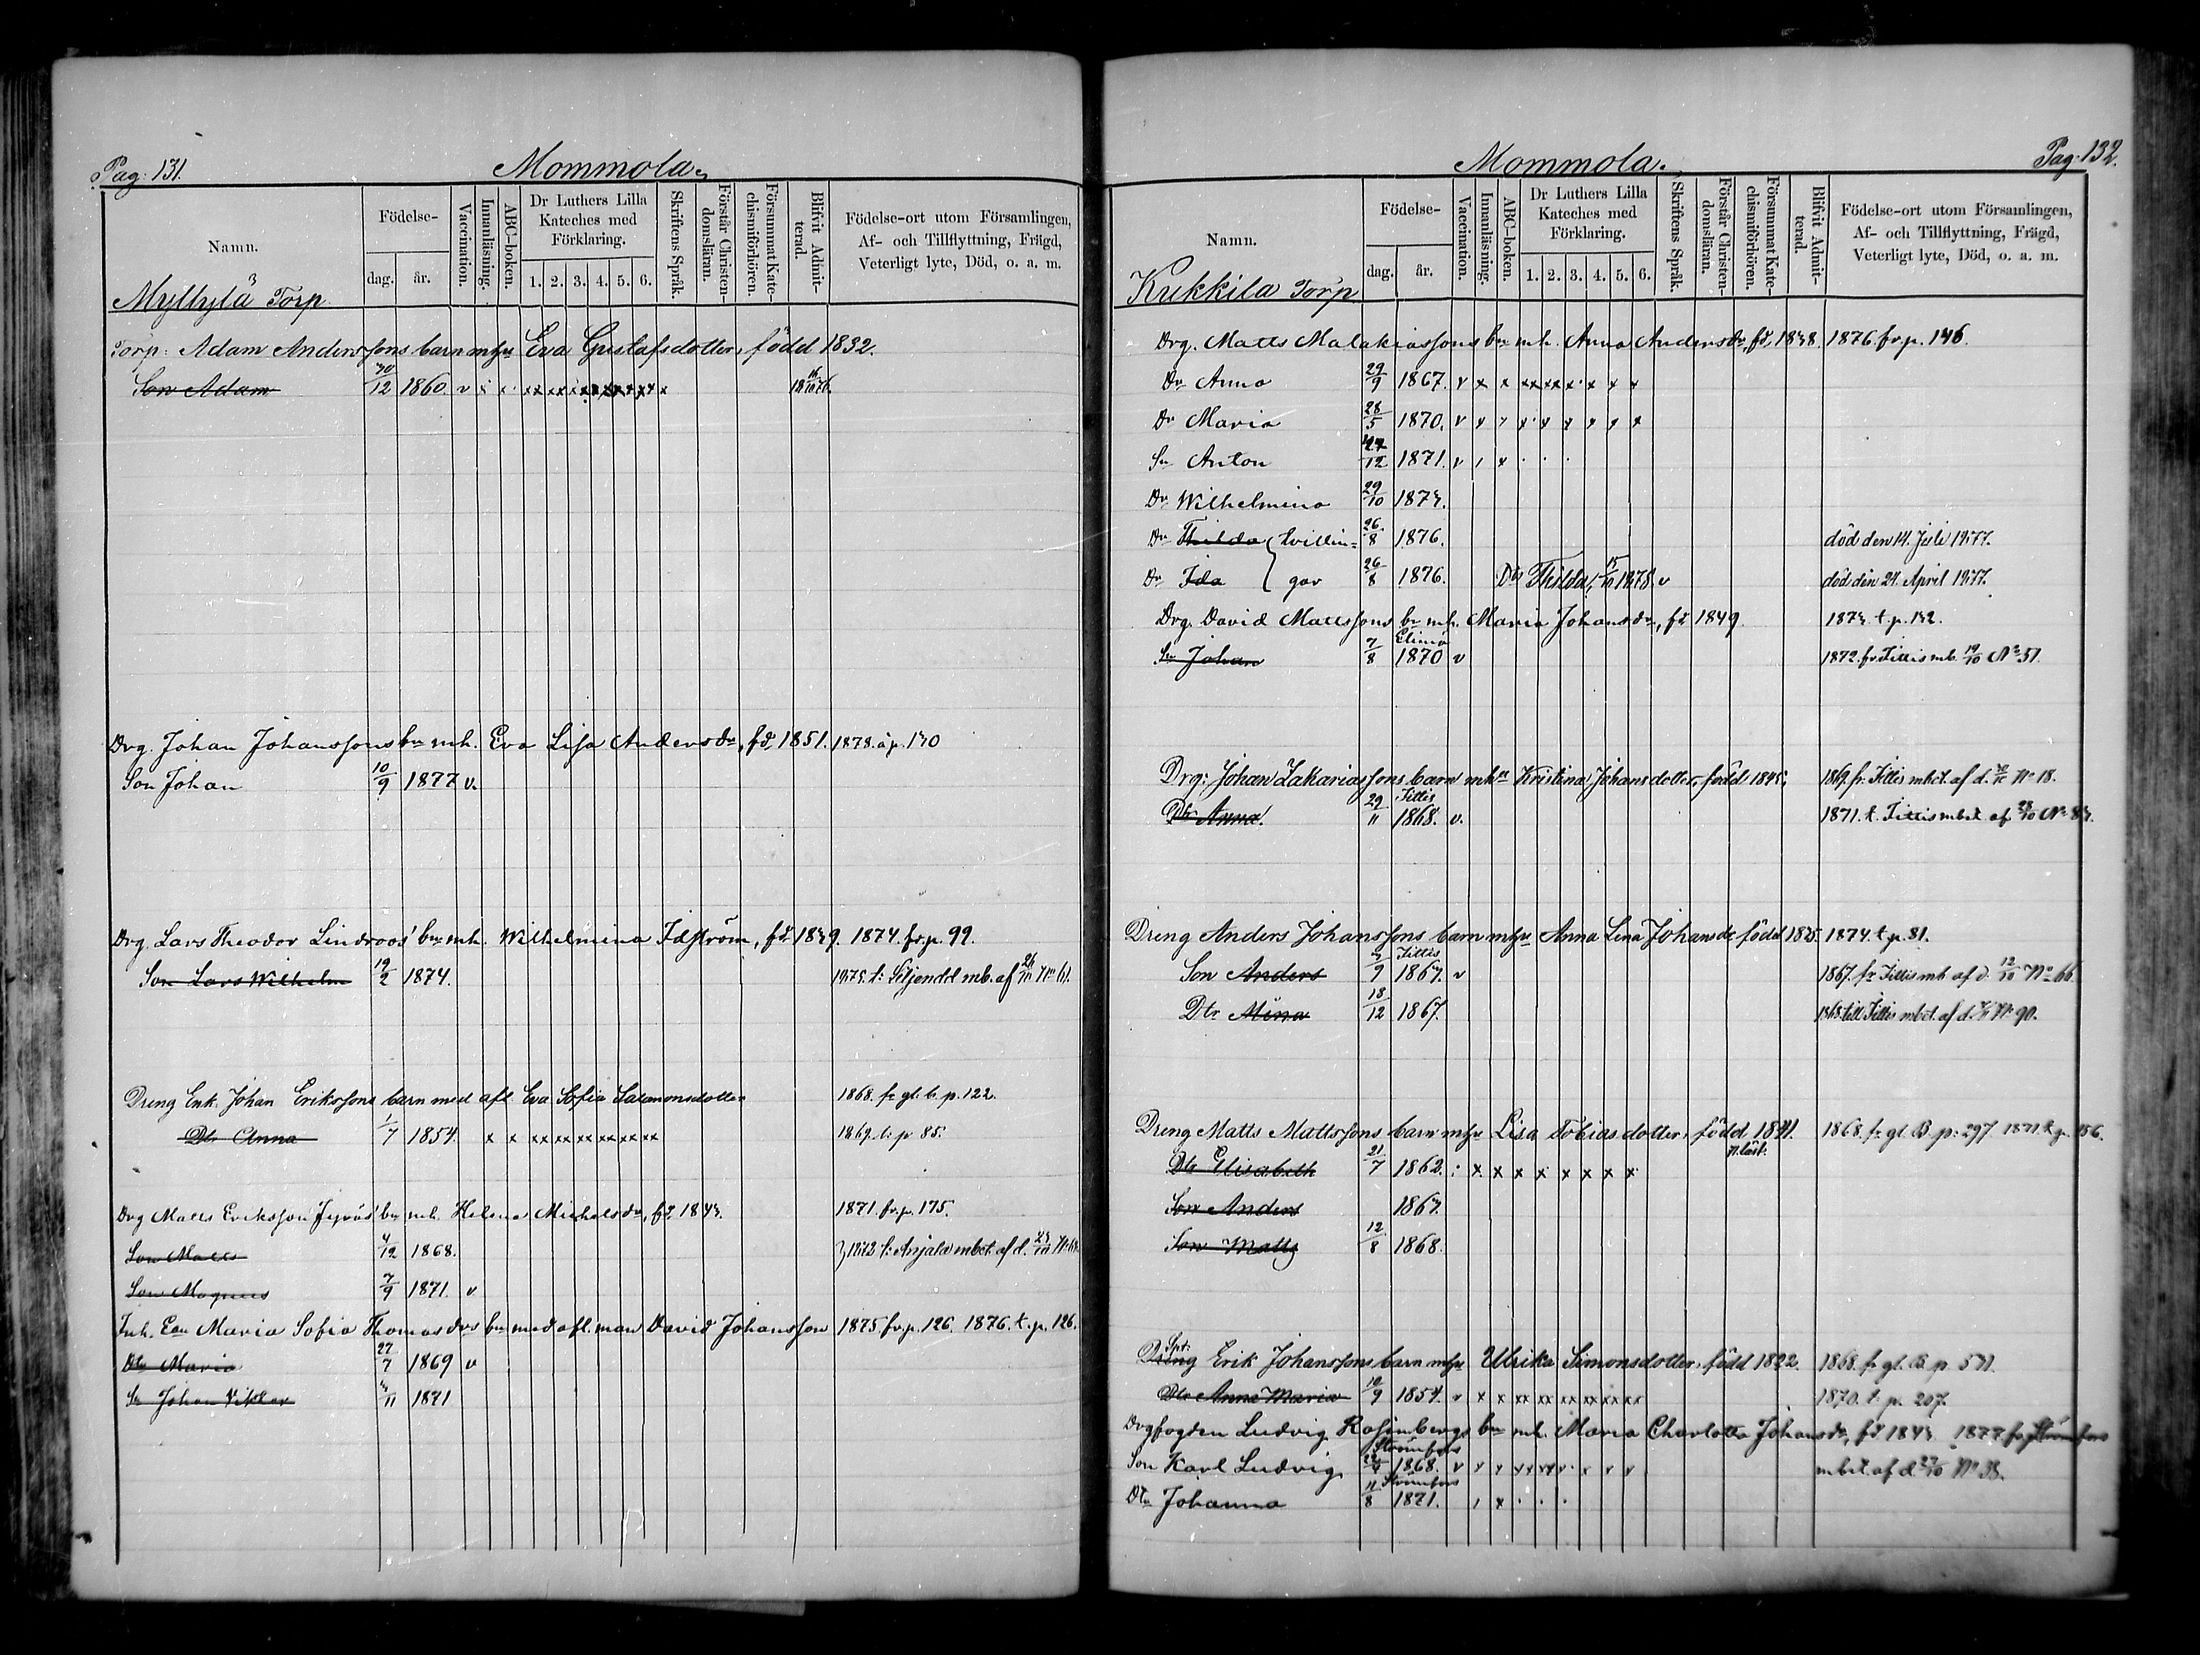 Pag: 131.
Mommola.
Namn.
Födelse-
dag.
år.
Vaccination.
Innanläsning.
ABC-boken.
Dr Luthers Lilla
Kateches med
Förklaring.
1. 2. 3. 4. 5. 6.
Skriftens Språk.
Förstår Christen-
domsläran.
Försummat Kate-
chismiförhören.
Blifvit Admit-
terad.
Födelse-ort utom Församlingen,
Af- och Tillflyttning, Frägd,
Veterligt lyte, Död, o. a. m.
Myllylä Torp
Torp: Adam Anderssons barn m hu Eva Gustafsdotter, född 1832.
Son Adam 12 1860. v
Drg. Johan Johanssons bn m h. Eva Lisa Andersdr, fd 1851. 1878. å p. 130
Son Johan 10/9 1877 v.
Drg. Lars Theodor Lindroos' bn m h. Wilhelmina Idström, fd 1849. 1874. fr. p. 99.
Son Lars Wilhelm 19/2 1874. 1875. t. Itis mb. af
Dreng Enk. Johan Erikssons barn med afl. Eva Sofia Salomonsdotter 1868. fr gl. b. p. 122.
Dtr Anna 1/7 1854. x x xx xx xx xx xx xx 1869. t. p 85.
Drg Matts Eriksson bn m h. Helena Michelsdr, fd 1843. 1871. fr. p. 175.
Son Matts 4/12 1868. 1872 t. Anjala mbet. af d.
Son Magnus 7/9 1871. v
Inh. Maria Sofia Thomasdrs bn med afl. man David Johansson 1875. fr. p. 126. 1876. t. p. 126.
Dtr Maria 27/7 1869 v
Sn Johan Viktor 11 1871
Mommola.
Pag: 132.
Namn.
Födelse-
dag.
år.
Vaccination.
Innanläsning.
ABC-boken.
Dr Luthers Lilla
Kateches med
Förklaring.
1. 2. 3. 4. 5. 6.
Skriftens Språk.
Förstår Christen-
domsläran.
Försummat Kate-
chismiförhören.
Blifvit Admit-
terad.
Födelse-ort utom Församlingen,
Af- och Tillflyttning, Frägd,
Veterligt lyte, Död, o. a. m.
Kukkila Torp
Drg. Matts Malakiassons bn m h. Anna Andersdr, fd 1838. 1876. fr. p. 146.
Dr Anna 29/9 1867. v x x xx xx x x x x
Dr Maria 28/5 1870. v x x x x x x x x
Sn Anton 27/12 1871. v
Dr Wilhelmina 29/10 1873.
Dr Thilda tvillin= 26/8 1876. död den 14. Juli 1877.
Dr Ida gar 26/8 1876. Dtr Thilda, 1878. v död den 24. April 1877.
Drg. David Mattssons bn m h. Maria Johansdr, fd 1849 1873. t. p. 132.
Elimä
Sn Johan 7/8 1870 v 1872. fr. Itis mb. 19/10 No 51.
Drg: Johan Zakariassons barn m hu Kristina Johansdotter, född 1845. 1869. fr. Ittis mbet. af d. No 18.
Ittis
Dtr Anna. 29/11 1868. v. 1871. t. Ittis mbet. af 28/10 No 83.
Dreng Anders Johanssons barn m hu Anna Lena Johansdr född 1825. 1874. t. p. 81.
Ittis
Son Anders 9 1863. v 1867. fr Ittis mb af d. 12/10 No 66.
Dtr Mina 18/12 1867. 1868. till Ittis mbet. af d. No 90.
Dreng Matts Mattssons barn m hu Lisa Tobiasdotter, född 1841. 1868. fr gl. B. p: 297 1871. t. p. 156.
Dtr Elisabeth 21/7 1862. : x x x x x x x x
Son Anders 1863.
Son Matts 12/8 1868.
Dreng Erik Johanssons barn m hu Ulrika Simonsdotter, född 1822. 1868. fr gl. B. p. 571.
Dtr Anna Maria 10/9 1854. v x x xx xx xx xx xx xx 1870. t: p. 207.
Drgfogden Ludvig Rosenbergs bn m h. Maria Charlotta Johansdr, fd 1843 1877. fr Strömfors
Strömfors
Son Karl Ludvig 1868. mbet. af d. 27/10 No 38.
Strömfors
Dtr Johanna 11/8 1871.